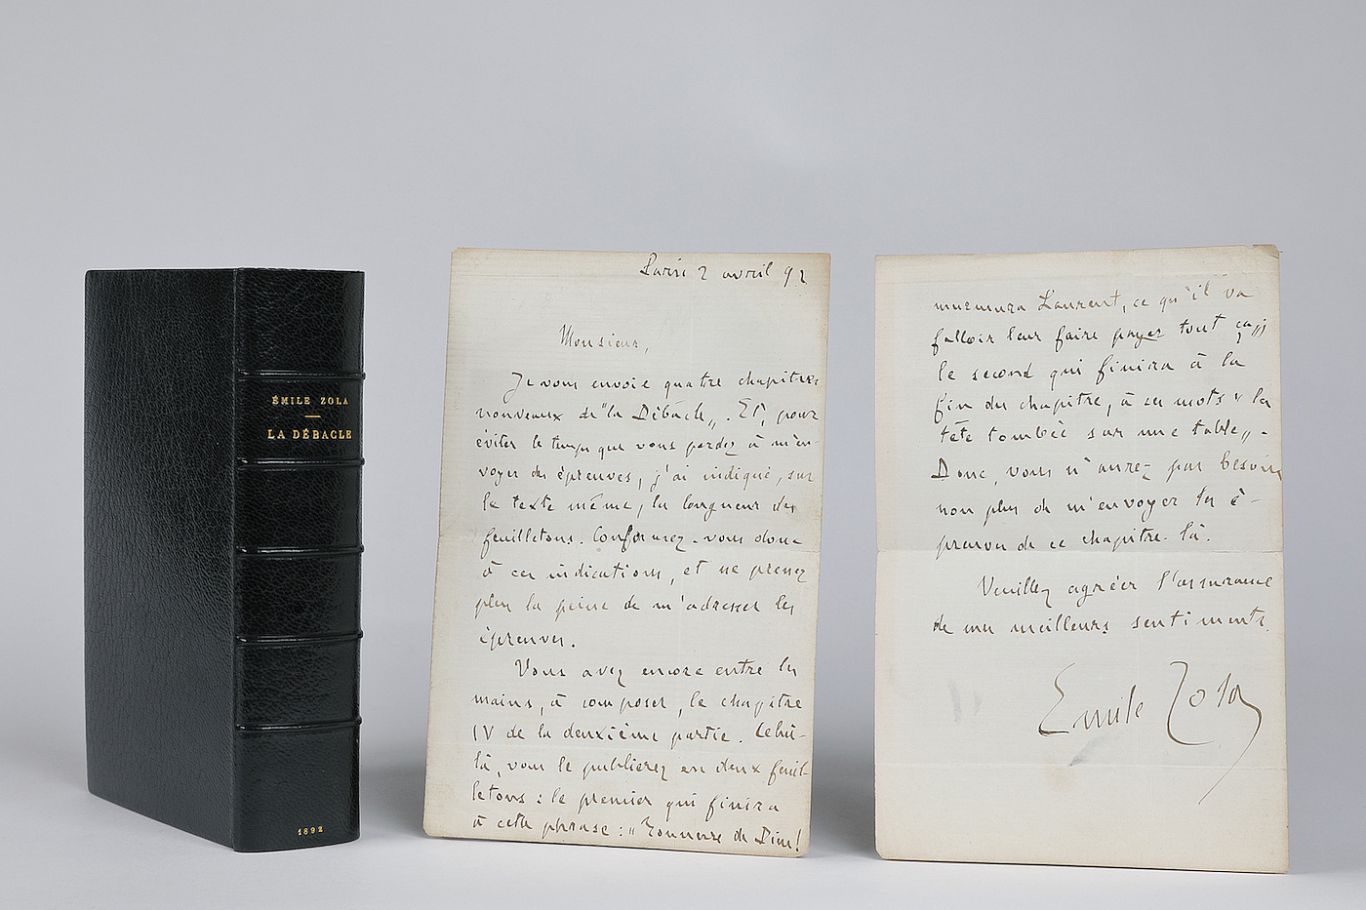 ÉMILE ZOLA
LA DÉBACLE
1892
Paris 2 avril 92
Monsieur,
Je vous envoie quatre chapitres
nouveaux de "la Débâcle„. Et, pour
éviter le temps que vous perdez à m'en-
voyer des épreuves, j'ai indiqué, sur
le texte même, la longueur des
feuilletons. Conformez-vous donc
à ces indications, et ne prenez
plus la peine de m'adresser les
épreuves.
Vous avez encore entre les
mains, à composer, le chapitre
IV de la deuxième partie. Celui-
là, vous le publierez en deux feuil-
letons : le premier qui finira
à cette phrase : "Tonnerre de Dieu!
murmura Laurent, ce qu'il va
falloir leur faire payer tout ça„;
le second qui finira à la
fin du chapitre, à ces mots : la
tête tombée sur une table„.
Donc, vous n'aurez pas besoin
non plus de m'envoyer les é-
preuves de ce chapitre-là.
Veuillez agréer l'assurance
de mes meilleurs sentiments.
Emile Zola